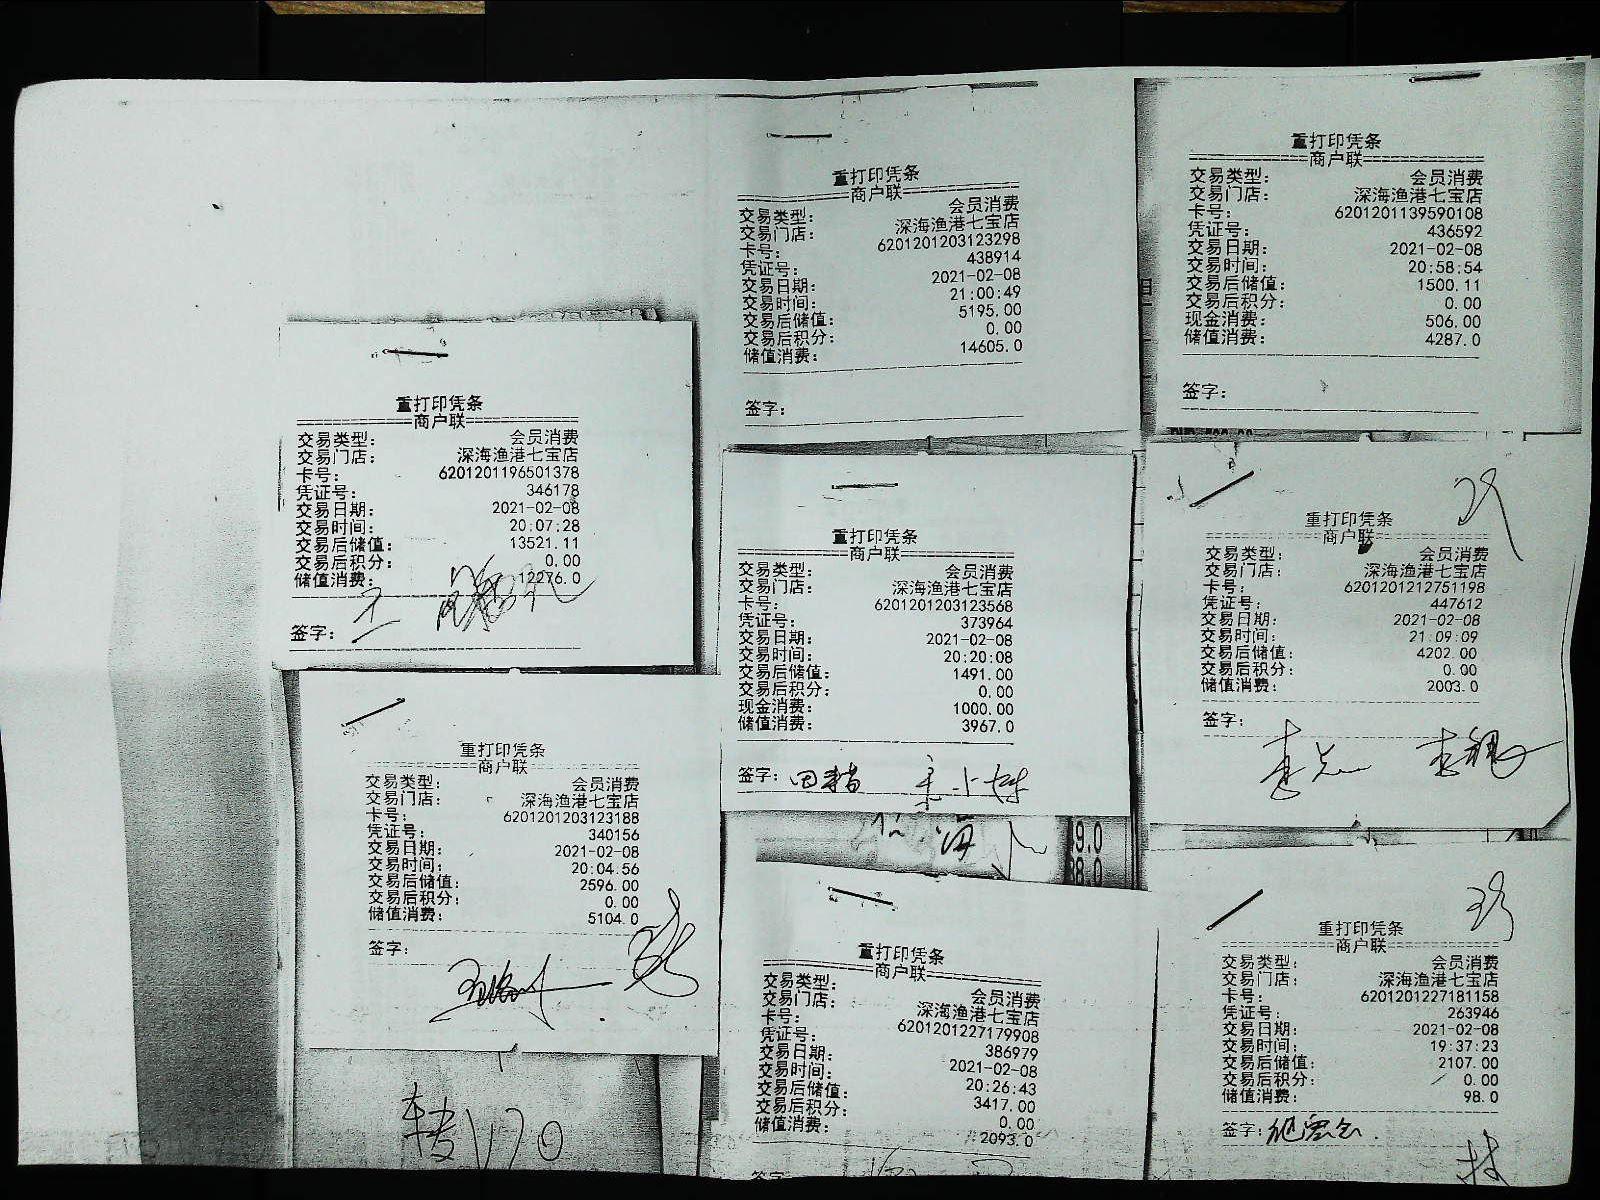 重打印凭条
商户联
交易类型: 会员消费
交易门店: 深海渔港七宝店
卡号: 6201201196501378
凭证号: 346178
交易日期: 2021-02-08
交易时间: 20:07:28
交易后储值: 13521.11
交易后积分: 0.00
储值消费: 12276.0
签字:
重打印凭条
商户联
交易类型: 会员消费
交易门店: 深海渔港七宝店
卡号: 6201201203123188
凭证号: 340156
交易日期: 2021-02-08
交易时间: 20:04:56
交易后储值: 2596.00
交易后积分: 0.00
储值消费: 5104.0
签字:
重打印凭条
商户联
交易类型: 会员消费
交易门店: 深海渔港七宝店
卡号: 6201201203123298
凭证号: 438914
交易日期: 2021-02-08
交易时间: 21:00:49
交易后储值: 5195.00
交易后积分: 0.00
储值消费: 14605.0
签字:
重打印凭条
商户联
交易类型: 会员消费
交易门店: 深海渔港七宝店
卡号: 6201201203123568
凭证号: 373964
交易日期: 2021-02-08
交易时间: 20:20:08
交易后储值: 1491.00
交易后积分: 0.00
现金消费: 1000.00
储值消费: 3967.0
签字:
9.0
8.0
重打印凭条
商户联
交易类型: 会员消费
交易门店: 深海渔港七宝店
卡号: 6201201227179908
凭证号: 386979
交易日期: 2021-02-08
交易时间: 20:26:43
交易后储值: 3417.00
交易后积分: 0.00
储值消费: 2093.0
签字
重打印凭条
商户联
交易类型: 会员消费
交易门店: 深海渔港七宝店
卡号: 6201201139590108
凭证号: 436592
交易日期: 2021-02-08
交易时间: 20:58:54
交易后储值: 1500.11
交易后积分: 0.00
现金消费: 506.00
储值消费: 4287.0
签字:
重打印凭条
商户联
交易类型: 会员消费
交易门店: 深海渔港七宝店
卡号: 6201201212751198
凭证号: 447612
交易日期: 2021-02-08
交易时间: 21:09:09
交易后储值: 4202.00
交易后积分: 0.00
储值消费: 2003.0
签字:
重打印凭条
商户联
交易类型: 会员消费
交易门店: 深海渔港七宝店
卡号: 6201201227181158
凭证号: 263946
交易日期: 2021-02-08
交易时间: 19:37:23
交易后储值: 2107.00
交易后积分: 0.00
储值消费: 98.0
签字: